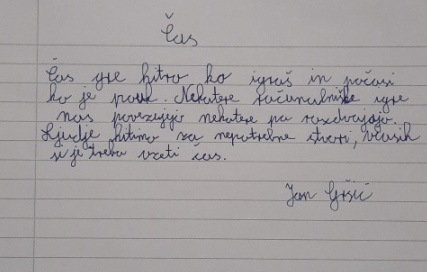 Čas
Čas gre hitro ko igraš in počasi
ko je pouk. Nekatere računalniške igre
nas povezujejo nekatere pa razdvajajo.
Ljudje hitimo za nepotrebne stvari, včasih
si je treba vzeti čas.
Jan Gršić